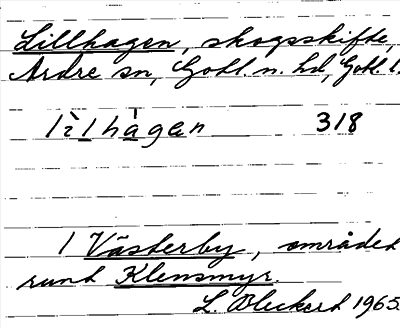 Lillhagen, skogsskifte,
Ardre sn, Gotl. n. hd, Gotl. l.
lìlhàgen 318
I Västerby, området
runt Klensmyr.
L. Bleckert 1965.